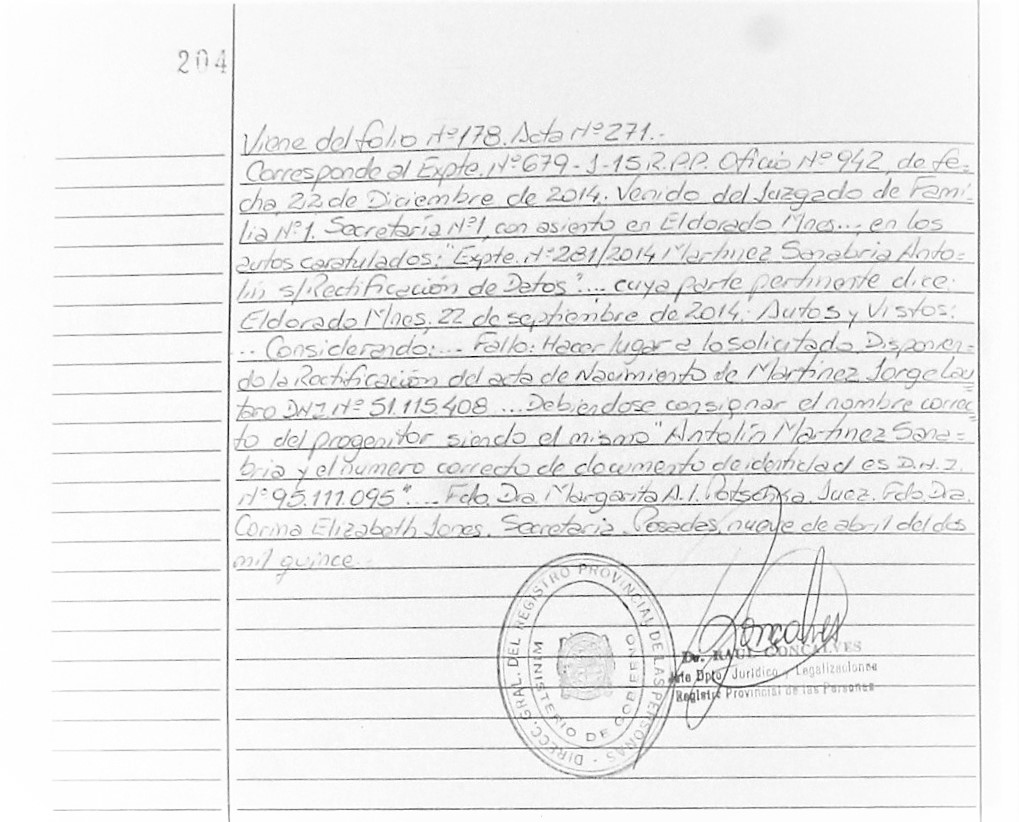 204
Viene del folio Nº 178. Acta Nº 271.-
Corresponde al Expte. Nº 679-J-15. R.P.P. Oficio Nº 942, de fe-
cha, 22 de Diciembre de 2014. Venido del Juzgado de Fami-
lia Nº 1. Secretaría Nº 1, con asiento en Eldorado Mnes... en los
autos caratulados: "Expte. Nº 281/2014 Martinez Sanabria Anto-
lín s/Rectificación de Datos"... cuya parte pertinente dice:
Eldorado Mnes, 22 de septiembre de 2014: Autos y Vistos:
... Considerando:... Fallo: Hacer lugar a lo solicitado. Disponien-
do la Rectificación del acta de Nacimiento de Martinez Jorge Lau-
taro D.N.I. Nº 51.115.408 ... Debiendose consignar el nombre correc-
to del progenitor siendo el mismo "Antolín Martinez Sana-
bria y el numero correcto de documento de identidad es D.N.I.
Nº 95.111.095"... Fdo. Dra. Margarita A.I. Potschka. Juez. Fdo. Dra.
Corina Elizabeth Jones. Secretaria. Posadas, nueve de abril del dos
mil quince.
DIRECC. GRAL. DEL REGISTRO PROVINCIAL DE LAS PERSONAS -
MINISTERIO DE GOBIERNO
Goncalves
Dr. RAUL GONCALVES
Jefe Dpto. Jurídico y Legalizaciones
Registro Provincial de las Personas